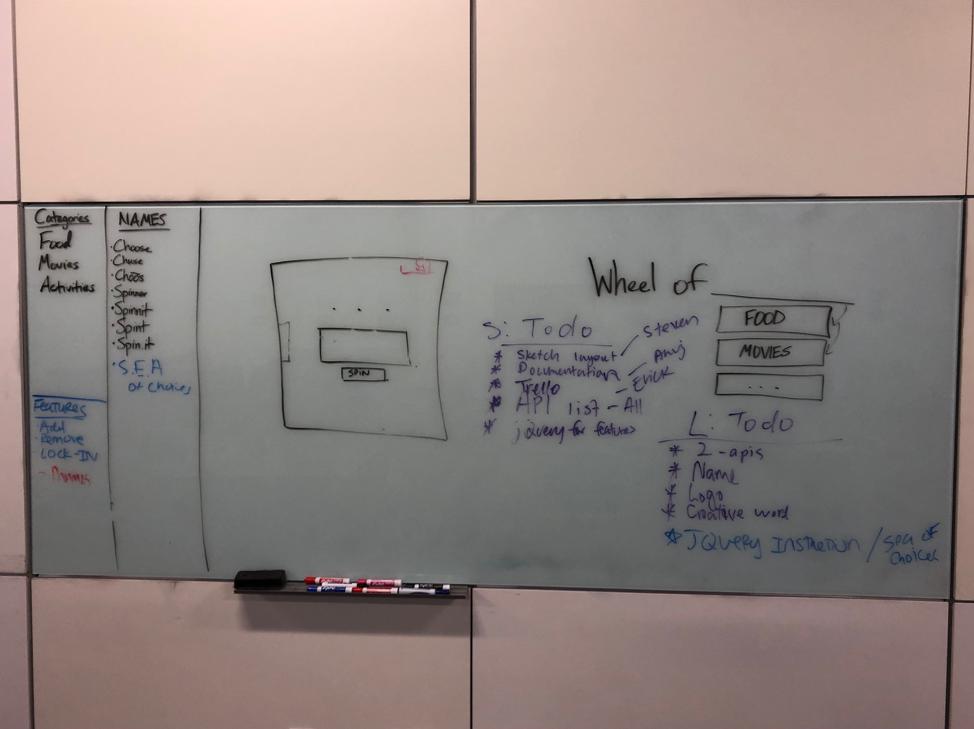 Categories
Food
Movies
Activities
FEATURES
· Add
· Remove
LOCK-IN
NAMES
· Choose
· Chuse
· Choos
· Spinner
· Spinnit
· Spint
· Spin.it
· S.E.A
of Choices
. . .
SPIN
Wheel of
FOOD
MOVIES
. . .
S: Todo
* Sketch layout
Steven
* Documentation
* Trello
Erick
* API list - All
* jQuery for features
L: Todo
* 2 - apis
* Name
* Logo
* Creative word
* JQuery / Sea of
Choices